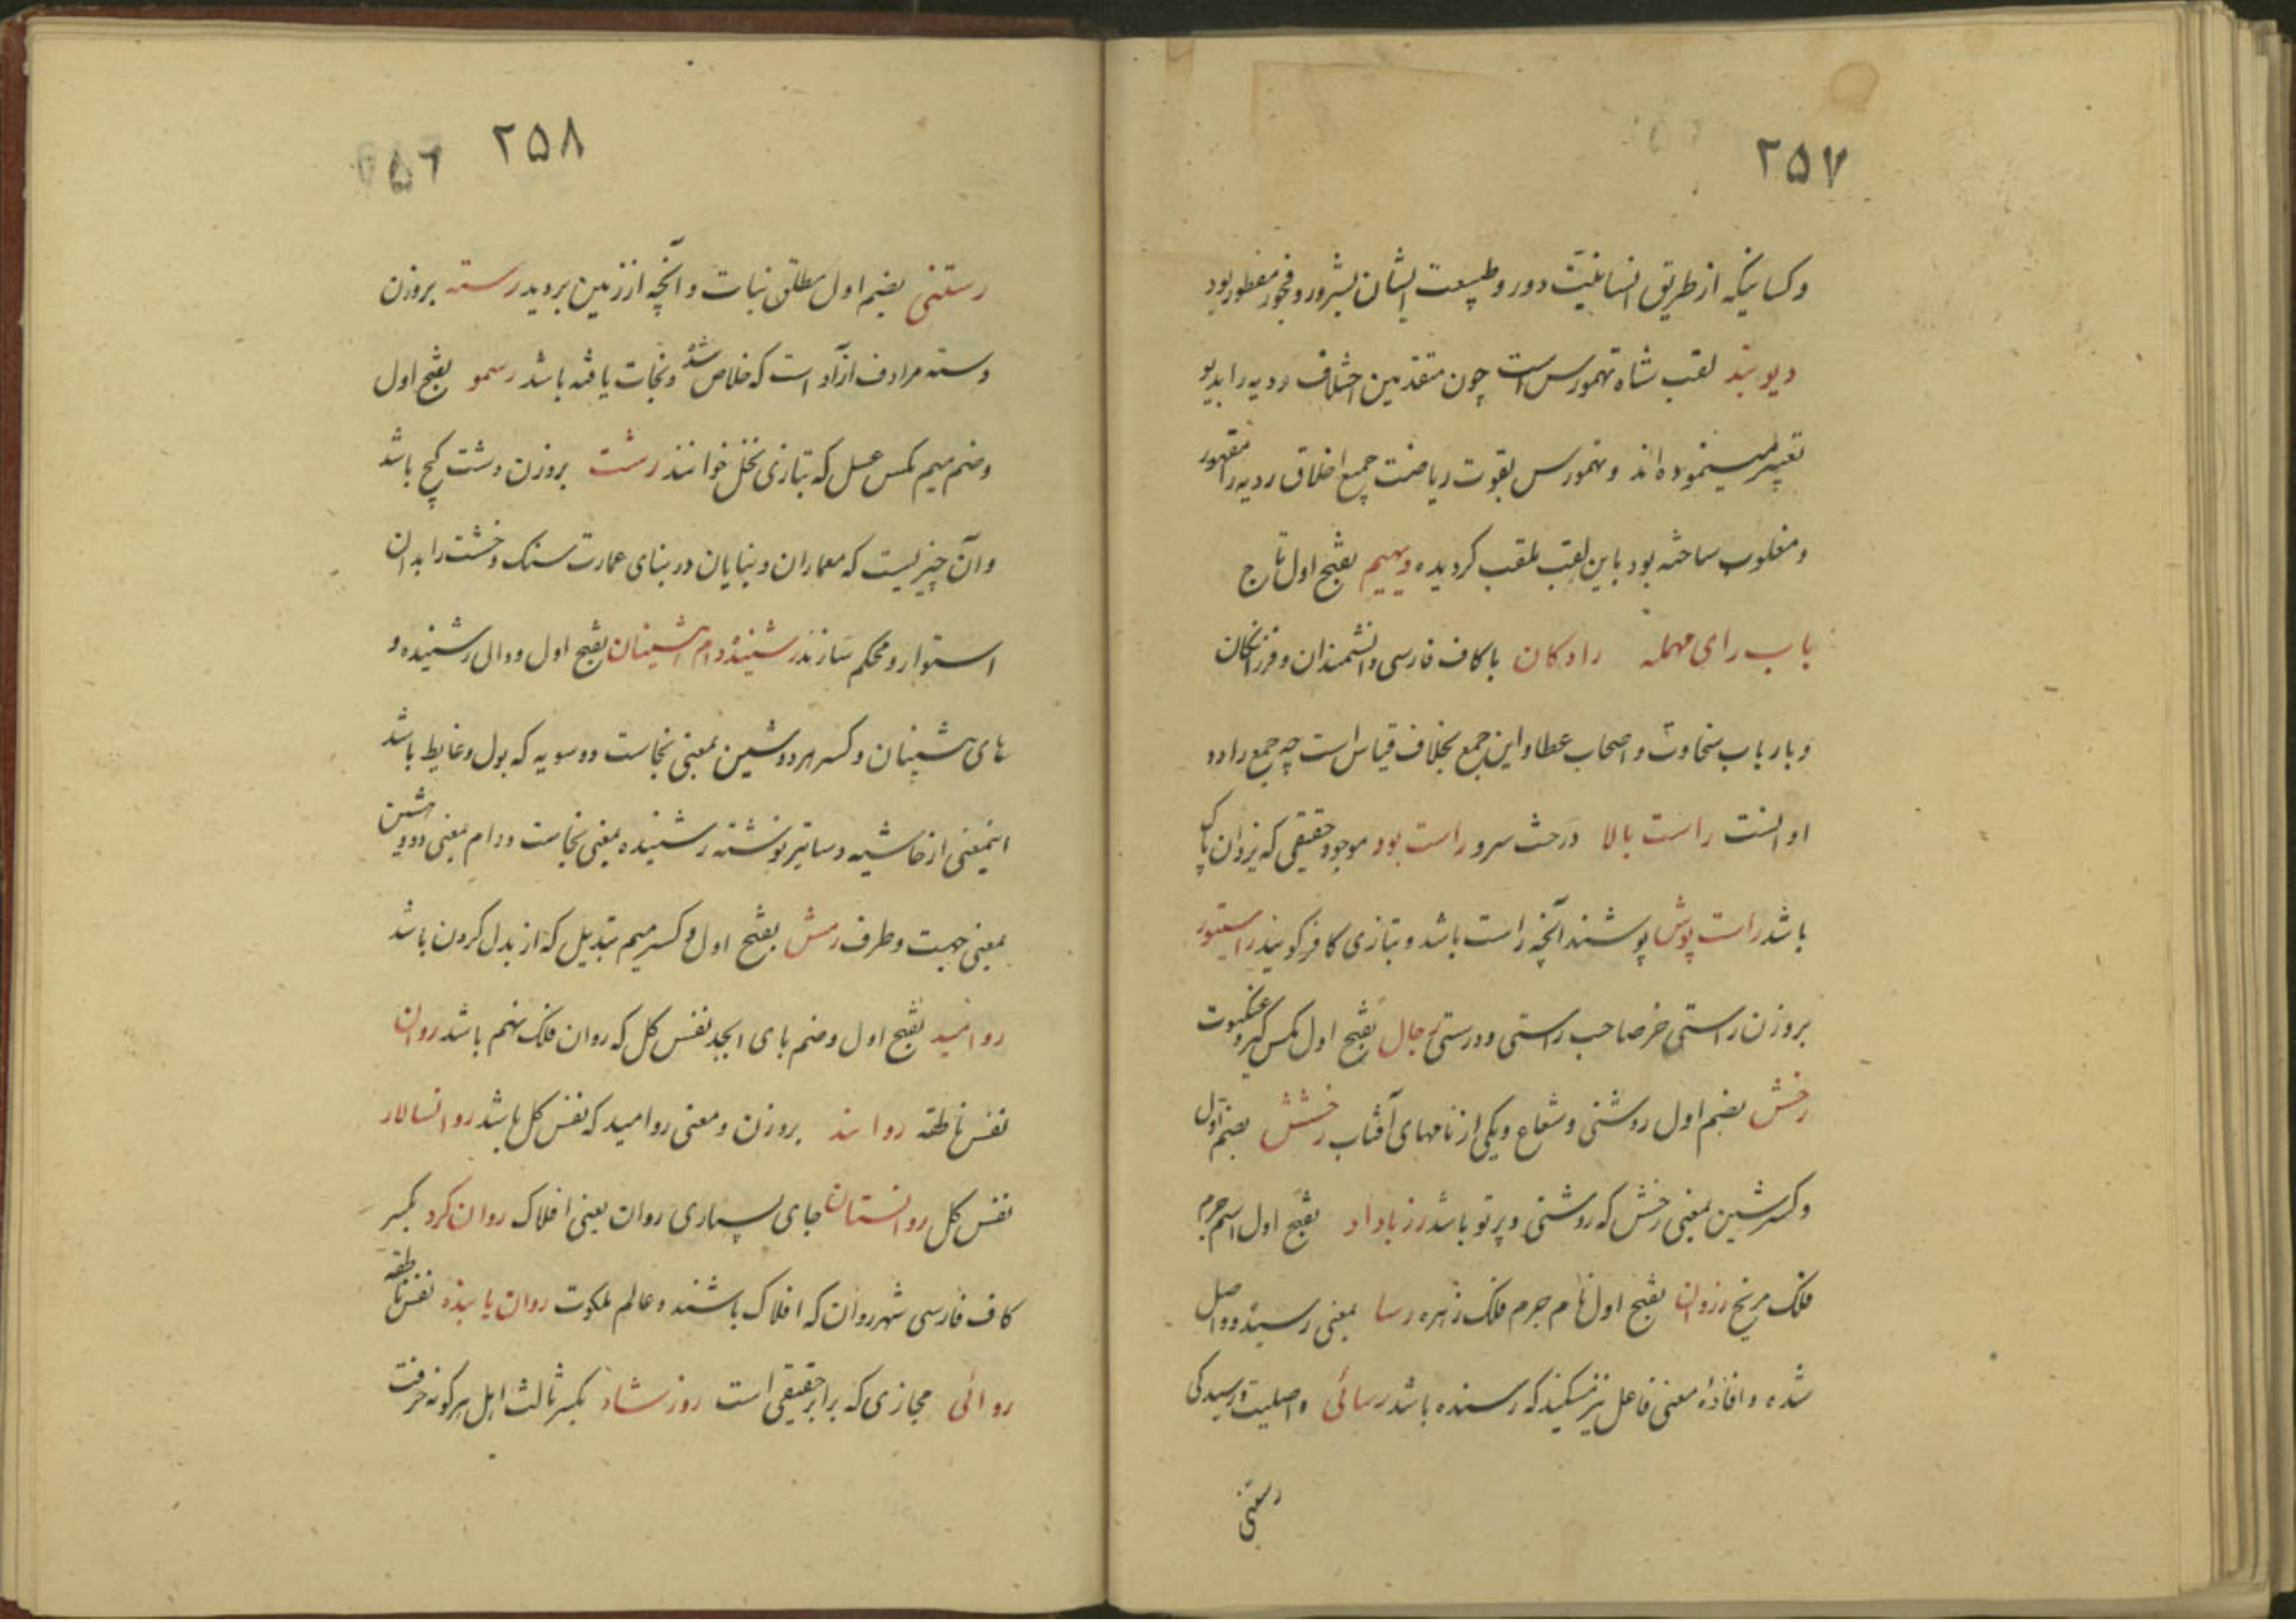 ۲۵۷
وکسانیکه از طریق انسانیّت دور و طبیعت ایشان بشرور و فجور مفطور بود
دیوبند لقب شاه تهمورس است چون متقدمین اخلاق ردیه را بدیو
تعبیر مینموده اند و تهمورس بقوت ریاضت جمیع اخلاق ردیه را مقهور
و مغلوب ساخته بود باین لقب ملقب کردیده دیهیم بفتح اول تاج
باب رای مهمله رادکان باکاف فارسی دانشمندان و فرزانکان
و بارباب سخاوت و اصحاب عطا و این جمع بخلاف قیاس است چه جمع راد د
او انست راست بالا درخت سرو راست بود موجود حقیقی که یزدان پاک
باشد راست پوش پوشند آنچه راست باشد و بتازی کافر کویند راستور
بروزن راستی خر صاحب راستی و درستی رجال بفتح اول مکس کیر و عنکبوت
رخش بضم اول روشنی و شعاع و یکی از نامهای آفتاب رخشش بضم اول
وکسر شین بمعنی رخش که روشنی و پرتو باشد رزباداد بفتح اول اسم جرم
فلک مریخ رزوان بفتح اول نام جرم فلک زهره رسا بمعنی رسیده و واصل
شده و افادهٔ معنی فاعل نیز میکند که رسنده باشد رسائی واصلیت و رسیدکی
رستنی
۲۵۸ ۲۵۶
رستنی بضم اول مطلق نبات و آنچه از زمین بروید رسته بروزن
دسته مرادف ازآد است که خلاص شده و نجات یافته باشد رسمو بفتح اول
وضم میم مکس عسل که بتازی نحل خوانند رشت بروزن دشت کچ باشد
وآن چیزیست که معماران و بنایان در بنای عمارت سنک و خشت را بدان
استوار و محکم سازند رشنیده دام هشینان بفتح اول و دال رشنیده و
های هشینان و کسر هر دو شین بمعنی نجاست دوسویه که بول و غایط باشد
اینمعنی از حاشیه دساتیر نوشته رشنیده بمعنی نجاست و دام بمعنی دو و هشین
بمعنی جهت و طرف رمش بفتح اول و کسر میم تبدیل که از بدل کردن باشد
روانبد بفتح اول وضم بای ابجد نفس کل که روان فلک نهم باشد روان
نفس ناطقه روانند بروزن و معنی روامید که نفس کل باشد روانسالار
نفس کل روانستان جای بسیاری روان یعنی افلاک روان کرد بکسر
کاف فارسی شهر روان که افلاک باشند و عالم ملکوت روان یابنده نفس ناطقه
روائی مجازی که برابر حقیقی است روزستاد بکسر ثالث اهل هرکونه حرفت